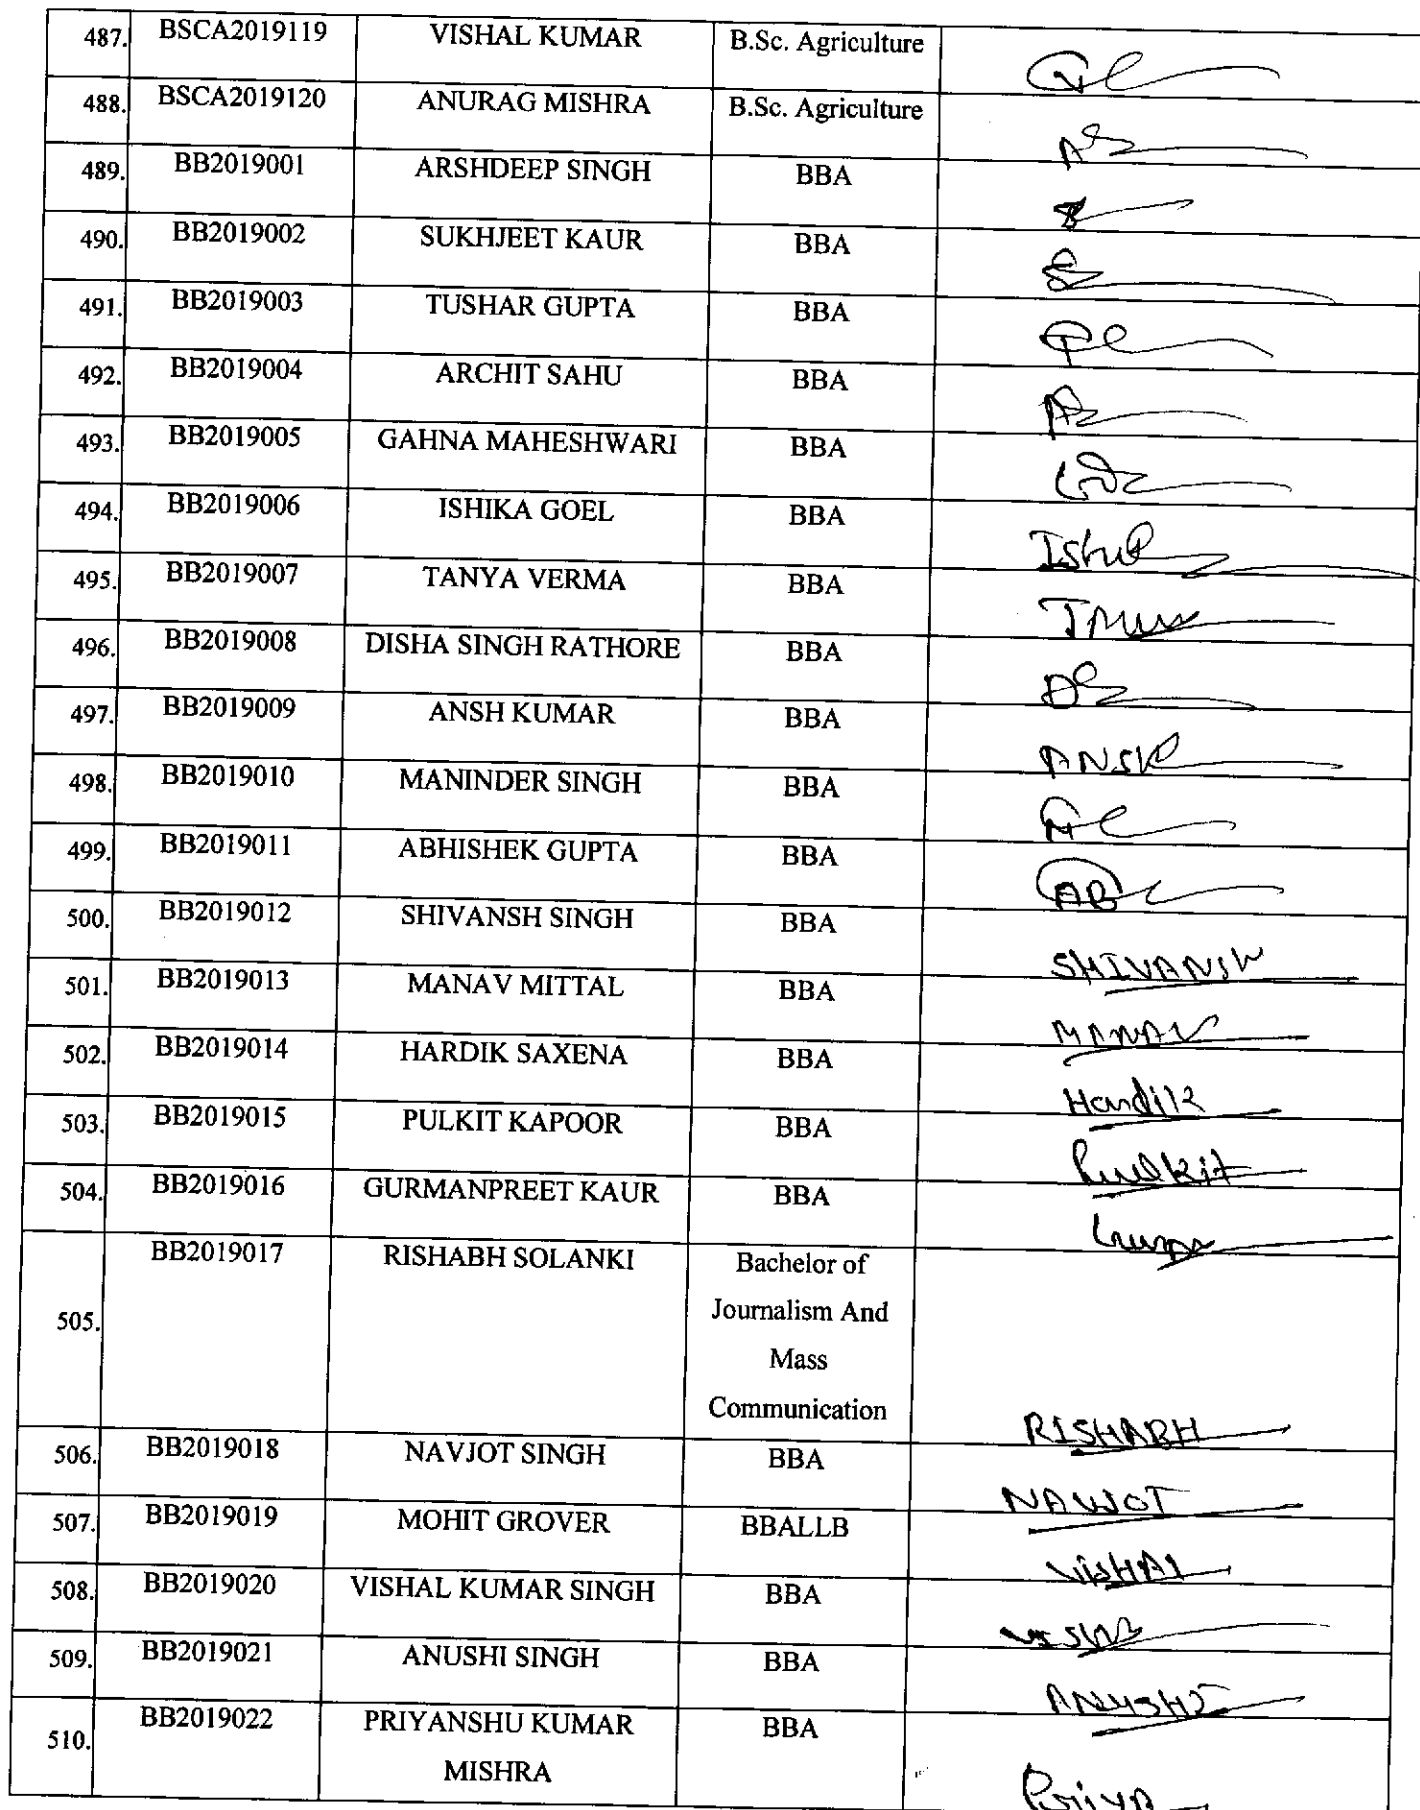 487. BSCA2019119 VISHAL KUMAR B.Sc. Agriculture
488. BSCA2019120 ANURAG MISHRA B.Sc. Agriculture
489. BB2019001 ARSHDEEP SINGH BBA
490. BB2019002 SUKHJEET KAUR BBA
491. BB2019003 TUSHAR GUPTA BBA
492. BB2019004 ARCHIT SAHU BBA
493. BB2019005 GAHNA MAHESHWARI BBA
494. BB2019006 ISHIKA GOEL BBA
495. BB2019007 TANYA VERMA BBA
496. BB2019008 DISHA SINGH RATHORE BBA
497. BB2019009 ANSH KUMAR BBA
498. BB2019010 MANINDER SINGH BBA
499. BB2019011 ABHISHEK GUPTA BBA
500. BB2019012 SHIVANSH SINGH BBA SHIVANSH
501. BB2019013 MANAV MITTAL BBA MANAV
502. BB2019014 HARDIK SAXENA BBA Hardik
503. BB2019015 PULKIT KAPOOR BBA Pulkit
504. BB2019016 GURMANPREET KAUR BBA
505. BB2019017 RISHABH SOLANKI Bachelor of
Journalism And
Mass
Communication RISHABH
506. BB2019018 NAVJOT SINGH BBA NAVJOT
507. BB2019019 MOHIT GROVER BBALLB VISHAL
508. BB2019020 VISHAL KUMAR SINGH BBA
509. BB2019021 ANUSHI SINGH BBA ANUSHI
510. BB2019022 PRIYANSHU KUMAR BBA
MISHRA Priya